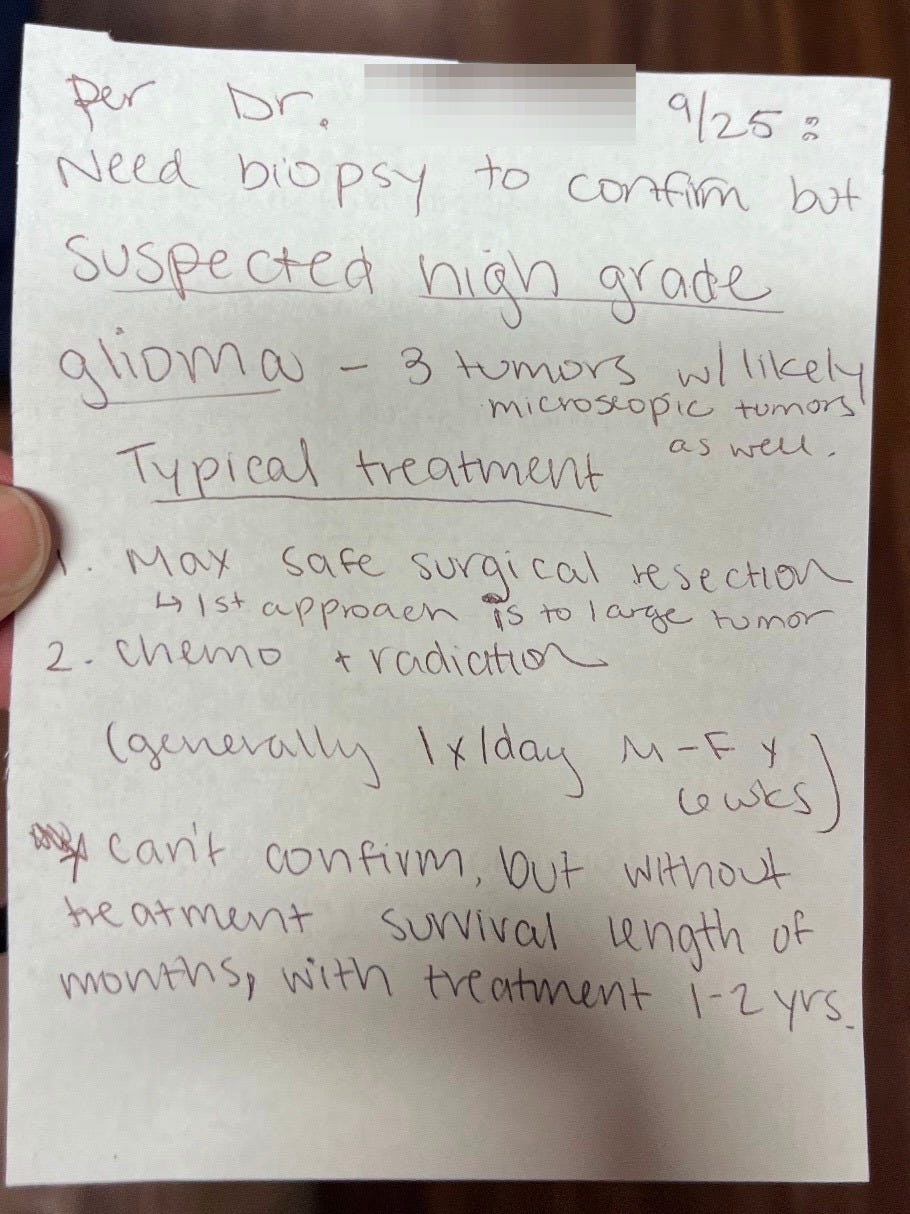 Per Dr. 9/25:
Need biopsy to confirm but
suspected high grade
glioma - 3 tumors w/ likely
microscopic tumors
as well.
Typical treatment
1. Max safe surgical resection
↳ 1st approach is to large tumor
2. chemo + radiation
(generally 1x/day M-F x
6 wks)
* can't confirm, but without
treatment survival length of
months, with treatment 1-2 yrs.